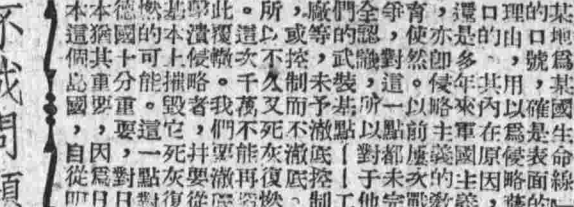 某地爲某國生命線—
的口號,確是表面的
理山,用以爲侵略藉
口的。其內在原因,
還是多年來軍國主義
,亦卽侵略主義的敎
育使然。以前屢次戰
爭,對這一點都未完
全認識,所以對于他
們的武裝基點——工
廠等,未予澈底控制
,或控制而不澈底。
所以不久又死灰復燃
。這次千萬不能再蹈
此覆轍。我們要
擊潰侵略者,幷要從
基本上摧毀它死灰復
燃的可能。這一點對
德國十分重要,對日
本猶其重要,因爲日
本這個島國,自從明
戰問題